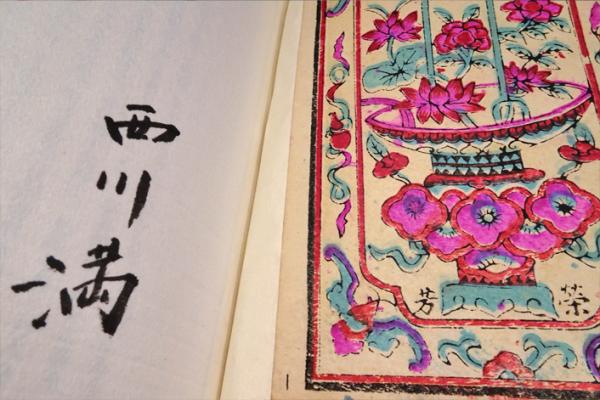 西川満
芳
榮